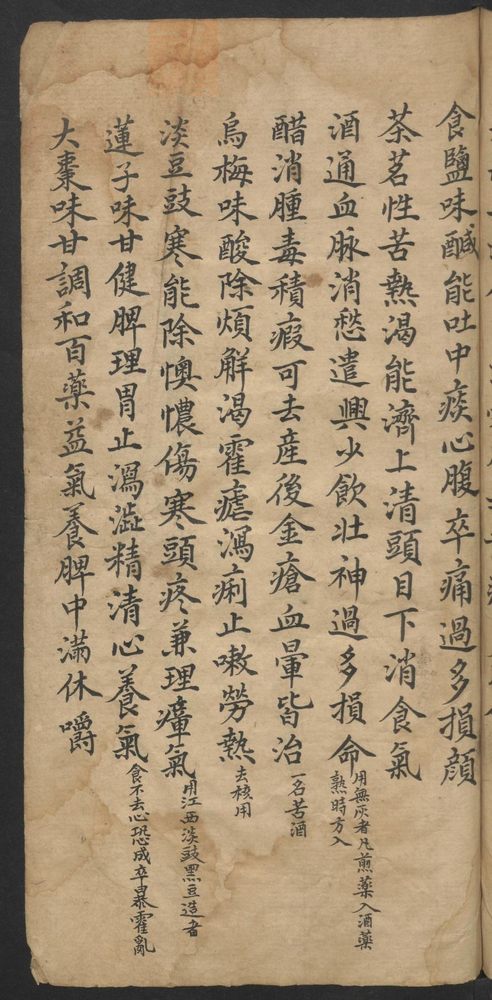 食鹽味鹹能吐中痰心腹卒痛過多損顔
茶茗性苦熱渴能濟上清頭目下消食氣
酒通血脉消愁遣興少飲壯神過多損命用無灰者凡煎藥入酒藥熟時方入
醋消腫毒積瘕可去産後金瘡血暈皆治一名苦酒
烏梅味酸除煩解渴霍瘧瀉痢止嗽勞熱去核用
淡豆豉寒能除懊憹傷寒頭疼兼理瘴氣用江西淡豉黑豆造者
蓮子味甘健脾理胃止瀉澁精清心養氣食不去心恐成卒暴霍亂
大棗味甘調和百藥益氣養脾中滿休嚼